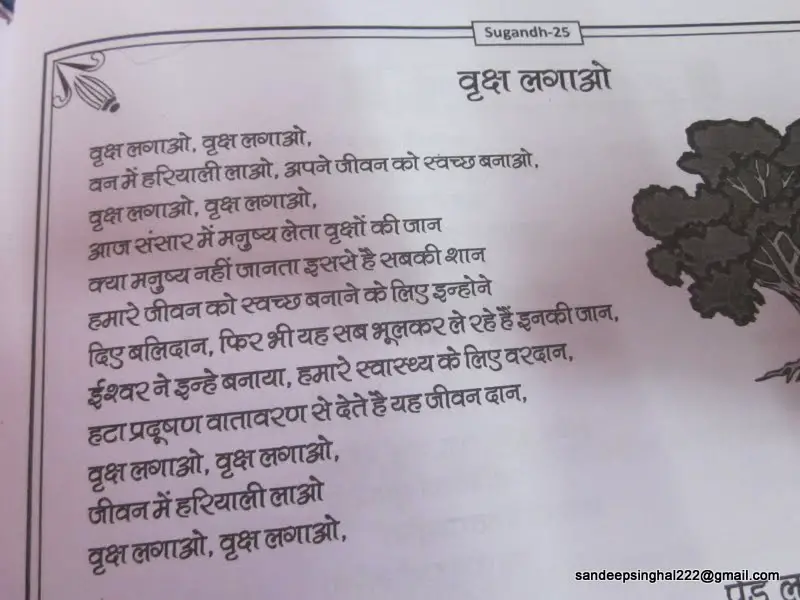 Sugandh-25
वृक्ष लगाओ
वृक्ष लगाओ, वृक्ष लगाओ,
वन में हरियाली लाओ, अपने जीवन को स्वच्छ बनाओ,
वृक्ष लगाओ, वृक्ष लगाओ,
आज संसार में मनुष्य लेता वृक्षों की जान
क्या मनुष्य नहीं जानता इससे है सबकी शान
हमारे जीवन को स्वच्छ बनाने के लिए इन्होने
दिए बलिदान, फिर भी यह सब भूलकर ले रहे हैं इनकी जान,
ईश्वर ने इन्हे बनाया, हमारे स्वास्थ्य के लिए वरदान,
हटा प्रदूषण वातावरण से देते है यह जीवन दान,
वृक्ष लगाओ, वृक्ष लगाओ,
जीवन में हरियाली लाओ
वृक्ष लगाओ, वृक्ष लगाओ,
sandeepsinghal222@gmail.com